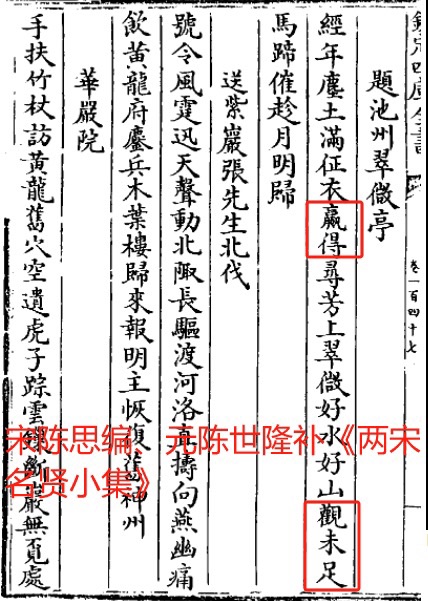 卷一百四十七
題池州翠微亭
經年塵土滿征衣贏得尋芳上翠微好水好山觀未足
馬蹄催趁月明歸
送紫巖張先生北伐
號令風霆迅天聲動北陬長驅渡河洛直擣向燕幽痛
飲黄龍府鏖兵木葉樓歸來報明主恢復舊神州
華嚴院
手扶竹杖訪黄龍舊穴空遺虎子踪雲鏁斷巖無覓處
宋陈思编、元陈世隆补《两宋
名贤小集》